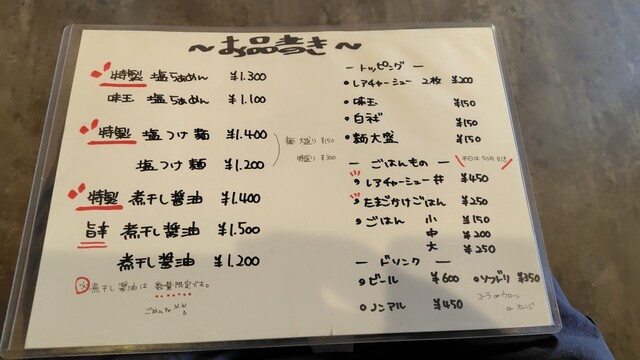 〜お品書き〜
特製 塩らぁめん ¥1.300
味玉 塩らぁめん ¥1.100
特製 塩つけ麺 ¥1.400
塩つけ麺 ¥1.200
麺 大盛り ¥150
特盛り ¥300
特製 煮干し醤油 ¥1.400
旨辛 煮干し醤油 ¥1.500
煮干し醤油 ¥1.200
※煮干し醤油は数量限定です。
ごめんね
ー トッピング ー
レアチャーシュー 2枚 ¥200
味玉 ¥150
白ネギ ¥150
麺大盛 ¥150
ー ごはんもの ー
平日は50円引き
レアチャーシュー丼 ¥450
たまごかけごはん ¥250
ごはん 小 ¥150
中 ¥200
大 ¥250
ー ドリンク ー
ビール ¥600
ソフドリ ¥350
ノンアル ¥450
コーラ or ウーロン
or オレンジ